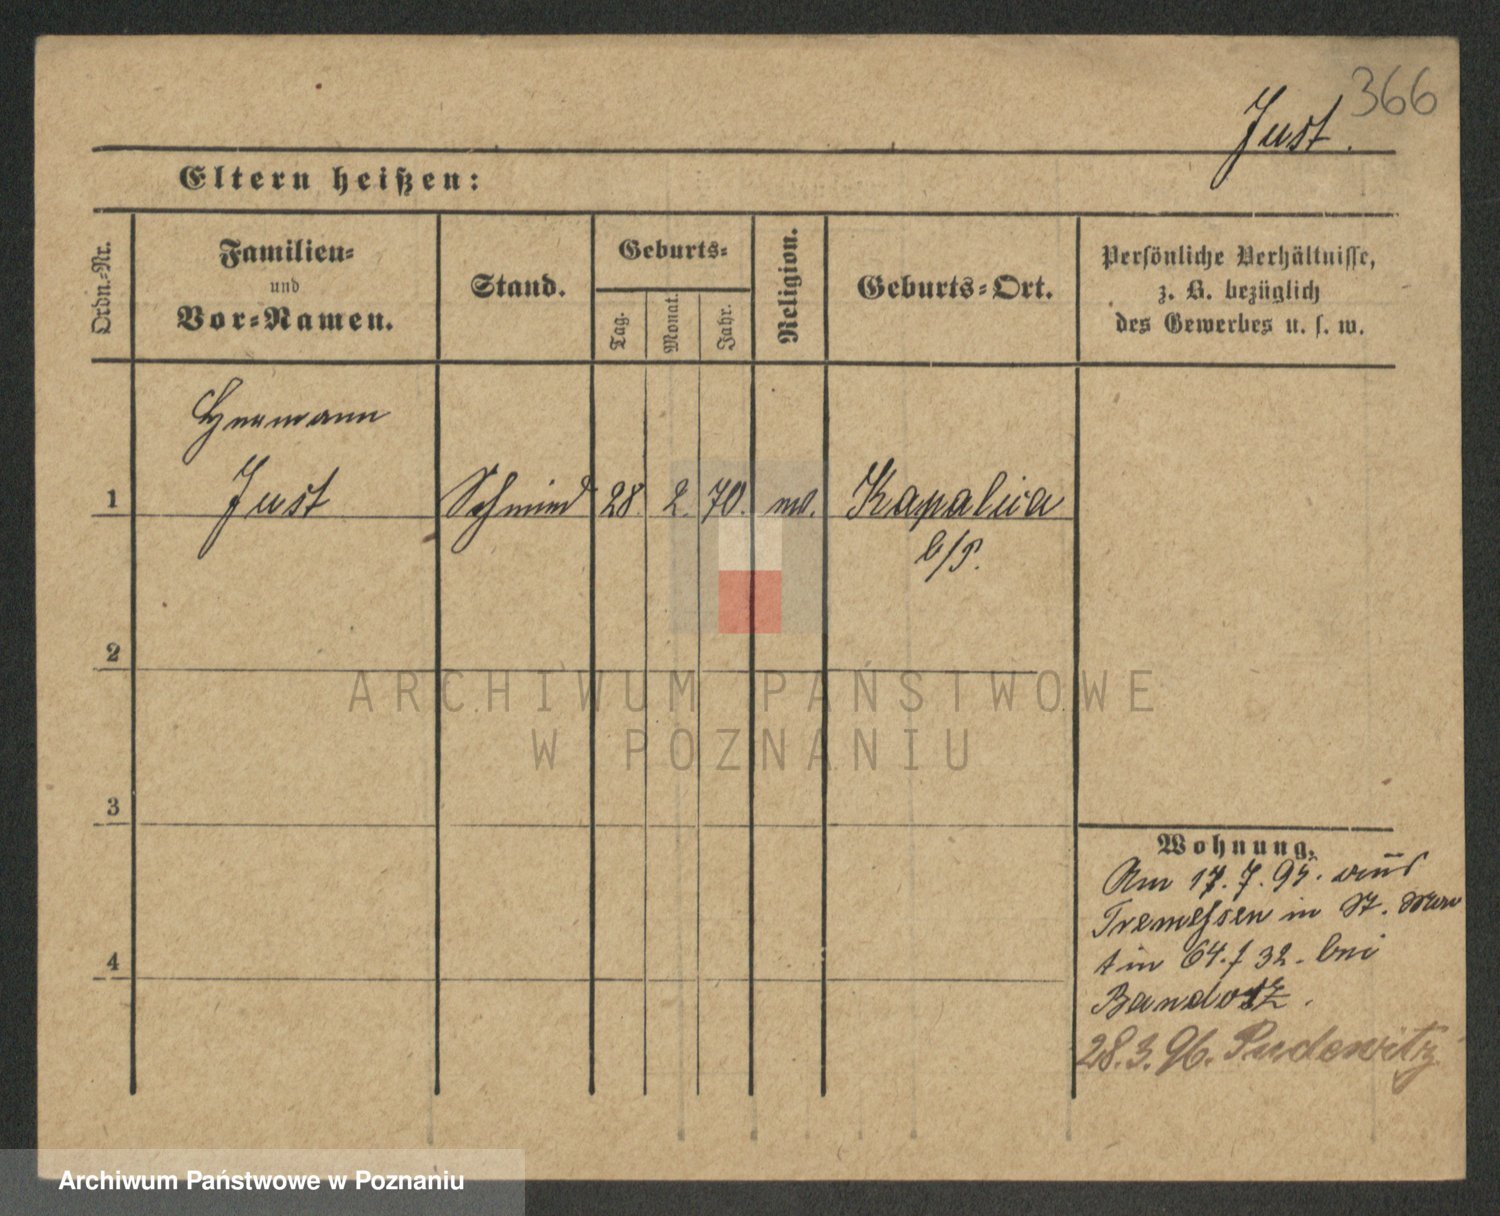 366
Just.
Eltern heißen:
Ordn.-Nr.
Familien-
und
Vor-Namen.
Stand.
Geburts-
Tag.
Monat.
Jahr.
Religion.
Geburts-Ort.
Persönliche Verhältnisse,
z. B. bezüglich
des Gewerbes u. s. w.
Hermann
1 Just Schmied 28. 2. 70. ev. Kapalica
b/P.
2
ARCHIWUM PAŃSTWOWE
W POZNANIU
3
Wohnung.
Am 17. 7. 95. aus
Tremessen in St. Mar
tin 64. / 32. bei
4
28. 3. 96. Pudewitz
Archiwum Państwowe w Poznaniu